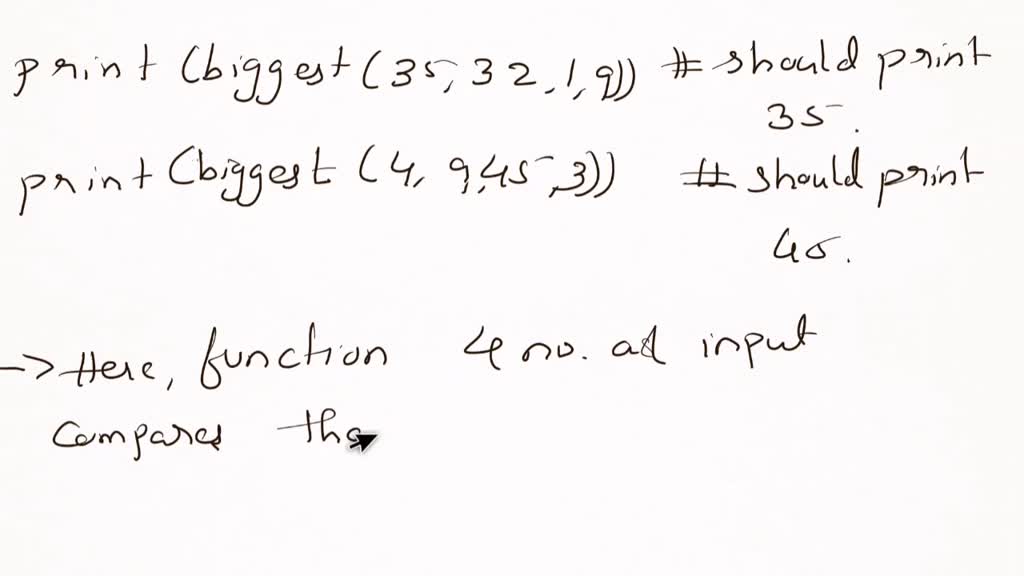 print (biggest (35, 32, 1, 9)) # should print
35.
print (biggest (4, 9, 45, 3)) # should print
45.
-> Here, function 4 no. as input
compares the